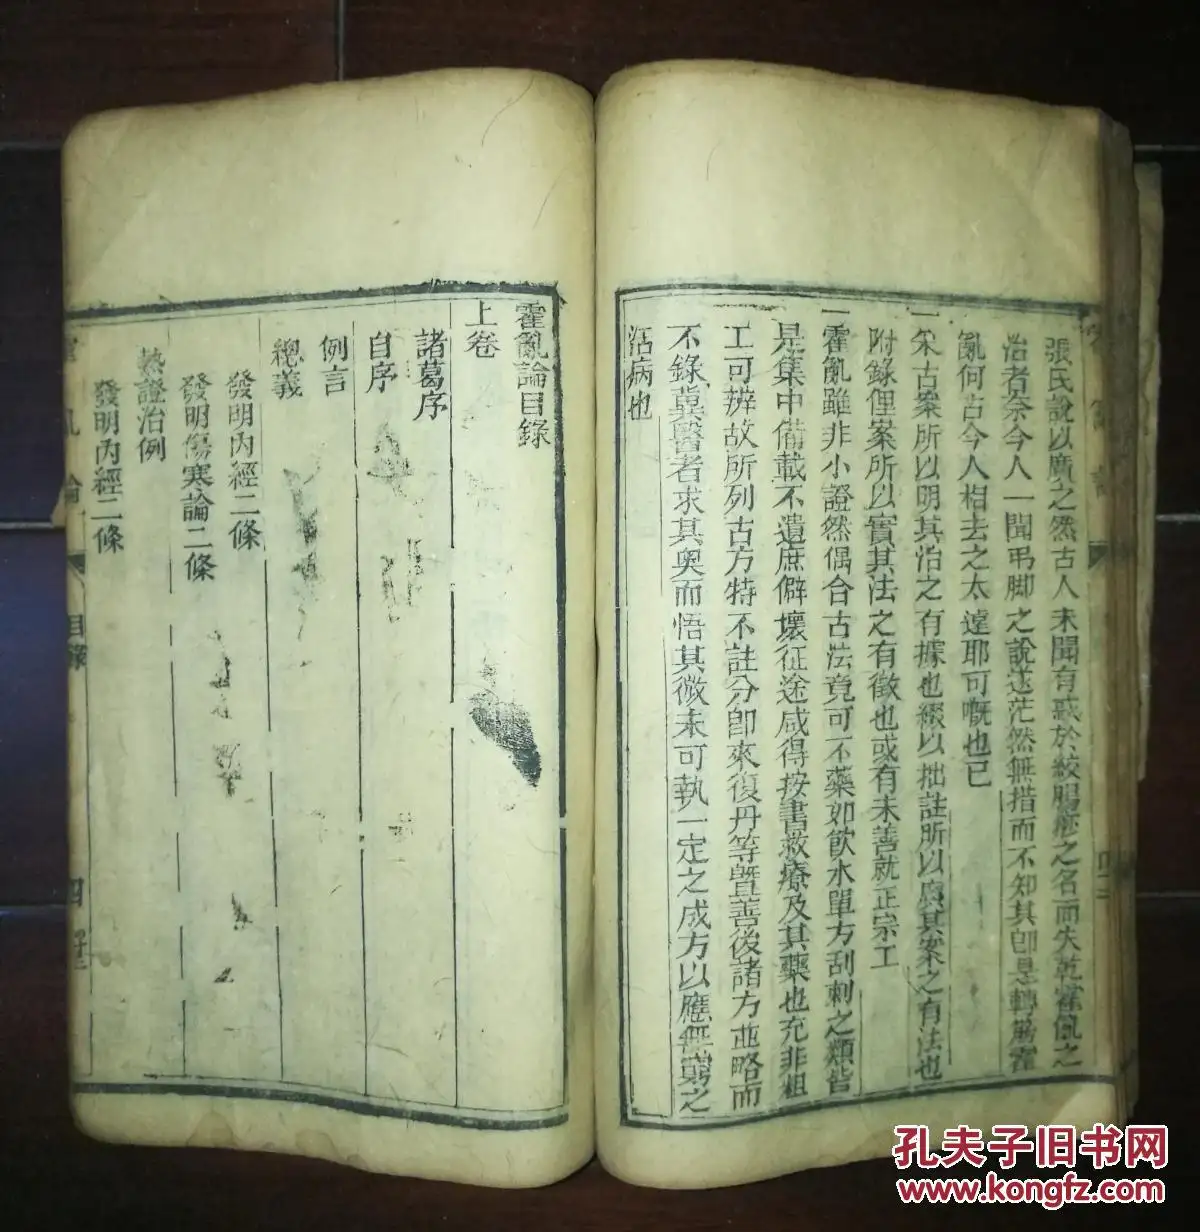 張氏說以廣之然古人未聞有惑於絞腸痧之名而失乾霍亂之
治者奈今人一聞弔脚之說遂茫然無措而不知其卽是轉筋霍
亂何古今人相去之太遠耶可嘅也已
一采古案所以明其治之有據也綴以拙註所以廣其案之有法也
附錄俚案所以實其法之有徵也或有未善就正宗工
一霍亂雖非小證然偶合古法竟可不藥如飲水單方刮刺之類皆
是集中備載不遺庶僻壤征途咸得按書救療及其藥也充非粗
工可辨故所列古方特不註分卽來復丹等曁善後諸方並略而
不錄冀醫者求其奥而悟其微未可執一定之成方以應無窮之
活病也
霍亂論目錄
上卷
諸葛序
自序
例言
總義
發明內經二條
發明傷寒論二條
熱證治例
發明內經二條
霍亂論 目錄 四
孔夫子旧书网
www.kongfz.com